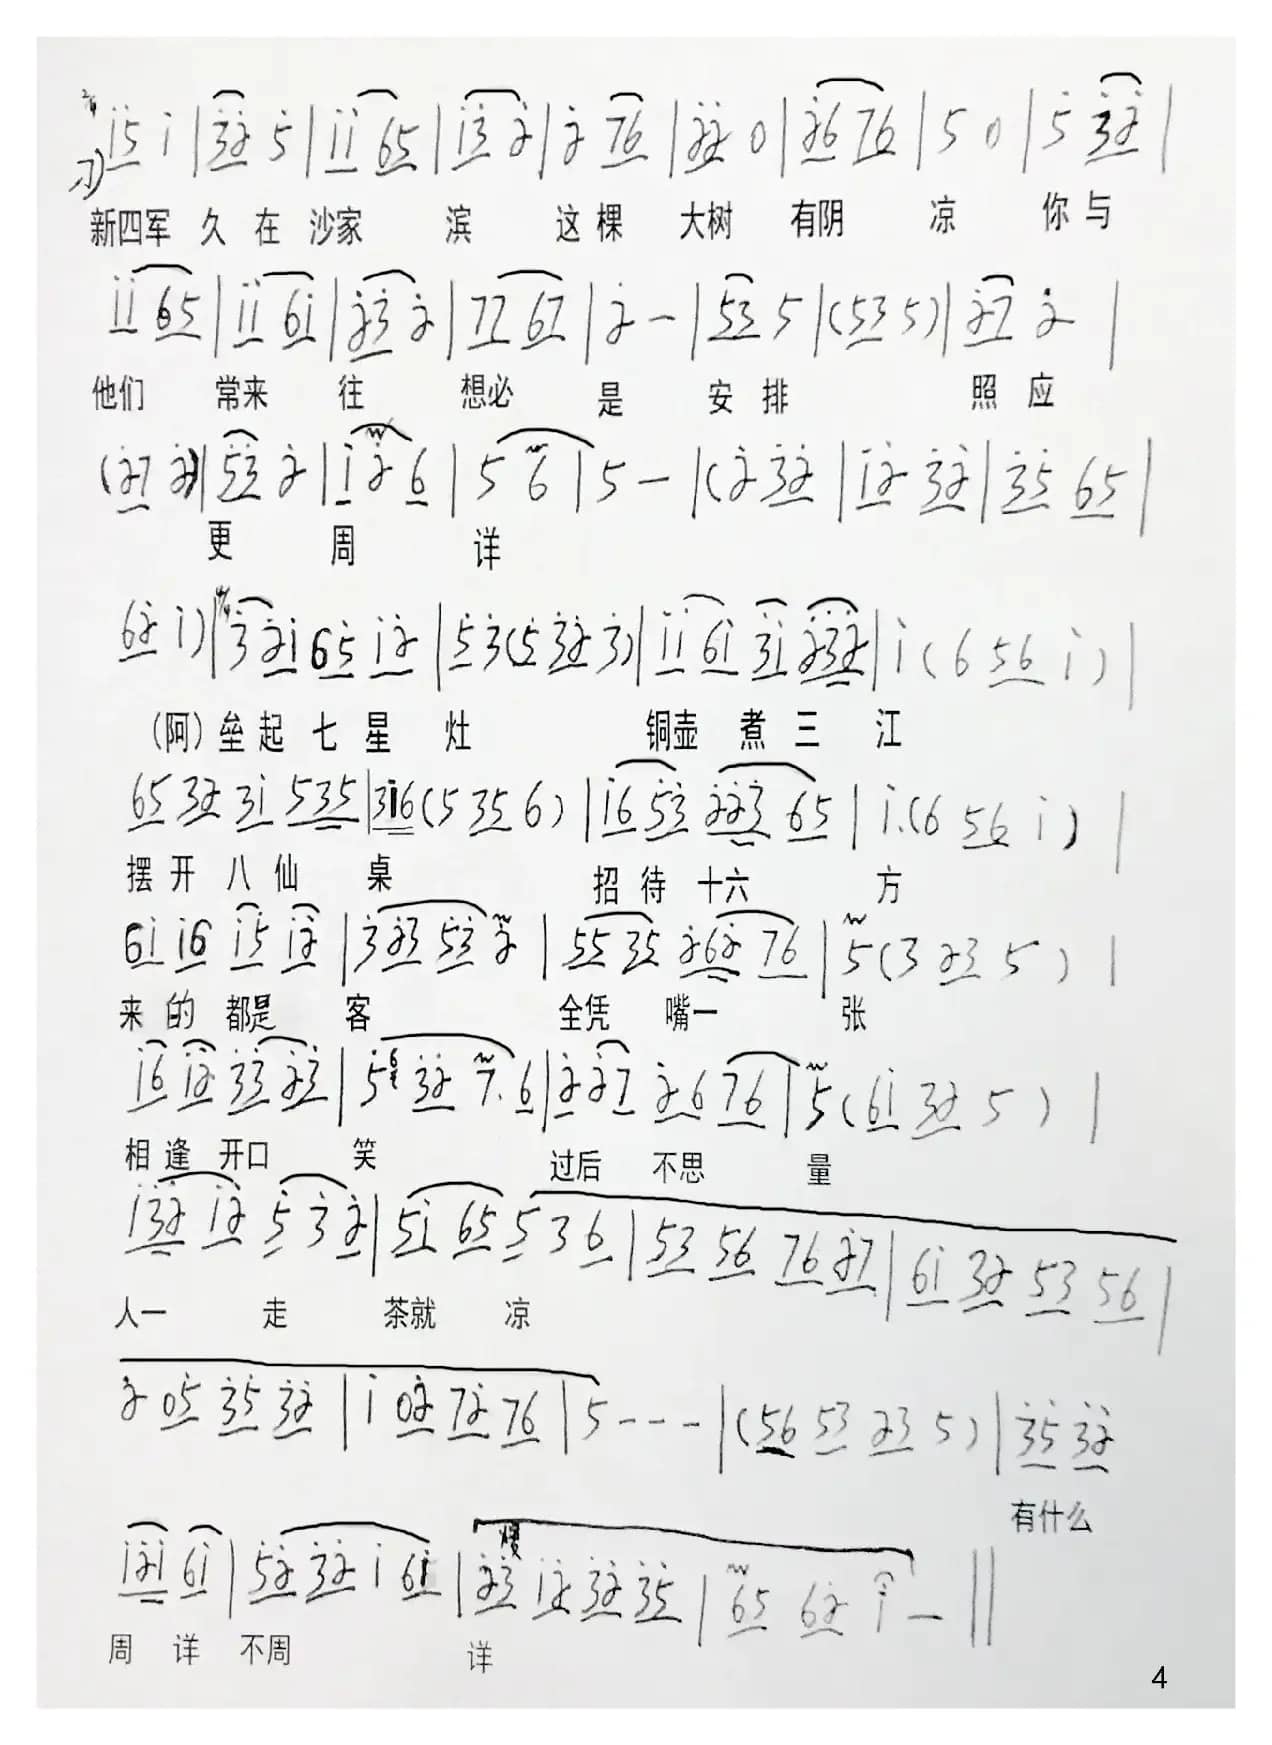 2/4 刁) i5 i | 32 5 | ii 65 | i3 2 | 2 76 | 22 0 | 26 76 | 5 0 | 5 32 |
新四军 久 在 沙家 滨 这 棵 大树 有阴 凉 你 与
ii 65 | ii 6i | 23 2 | 77 67 | 2 — | 53 5 | (53 5) | 27 2 |
他们 常来 往 想必 是 安 排 照 应
(27 2) | 53 2 | i 2 6 | 5 6 | 5 — | (2 32 | i2 32 | 35 65 |
更 周 详
62 i) | 3 2i 65 i2 | 53(5 32 3) | ii 6i 3i 232 | i (6 56 i) |
(阿) 垒 起 七 星 灶 铜壶 煮 三 江
65 32 3i 535 | 3i6 (5 35 6) | i6 53 223 65 | i.(6 56 i) |
摆 开 八 仙 桌 招 待 十六 方
6i i6 i5 i2 | 323 53 2 | 55 35 262 76 | 5 (3 23 5) |
来 的 都是 客 全凭 嘴一 张
i6 i2 33 23 | 5 32 7. 6 | 2 27 2 6 76 | 5 (6i 32 5) |
相 逢 开口 笑 过后 不思 量
i32 i2 5 3 2 | 5i 65 5 3 6 | 53 56 76 27 | 6i 32 53 56 |
人一 走 茶就 凉
2 05 35 32 | i 02 72 76 | 5 - - - | (56 53 23 5) | 35 32
有什么
i2i 6i | 52 32 i 6i | 慢 23 i2 32 35 | 65 62 i — ‖
周 详 不周 详
4